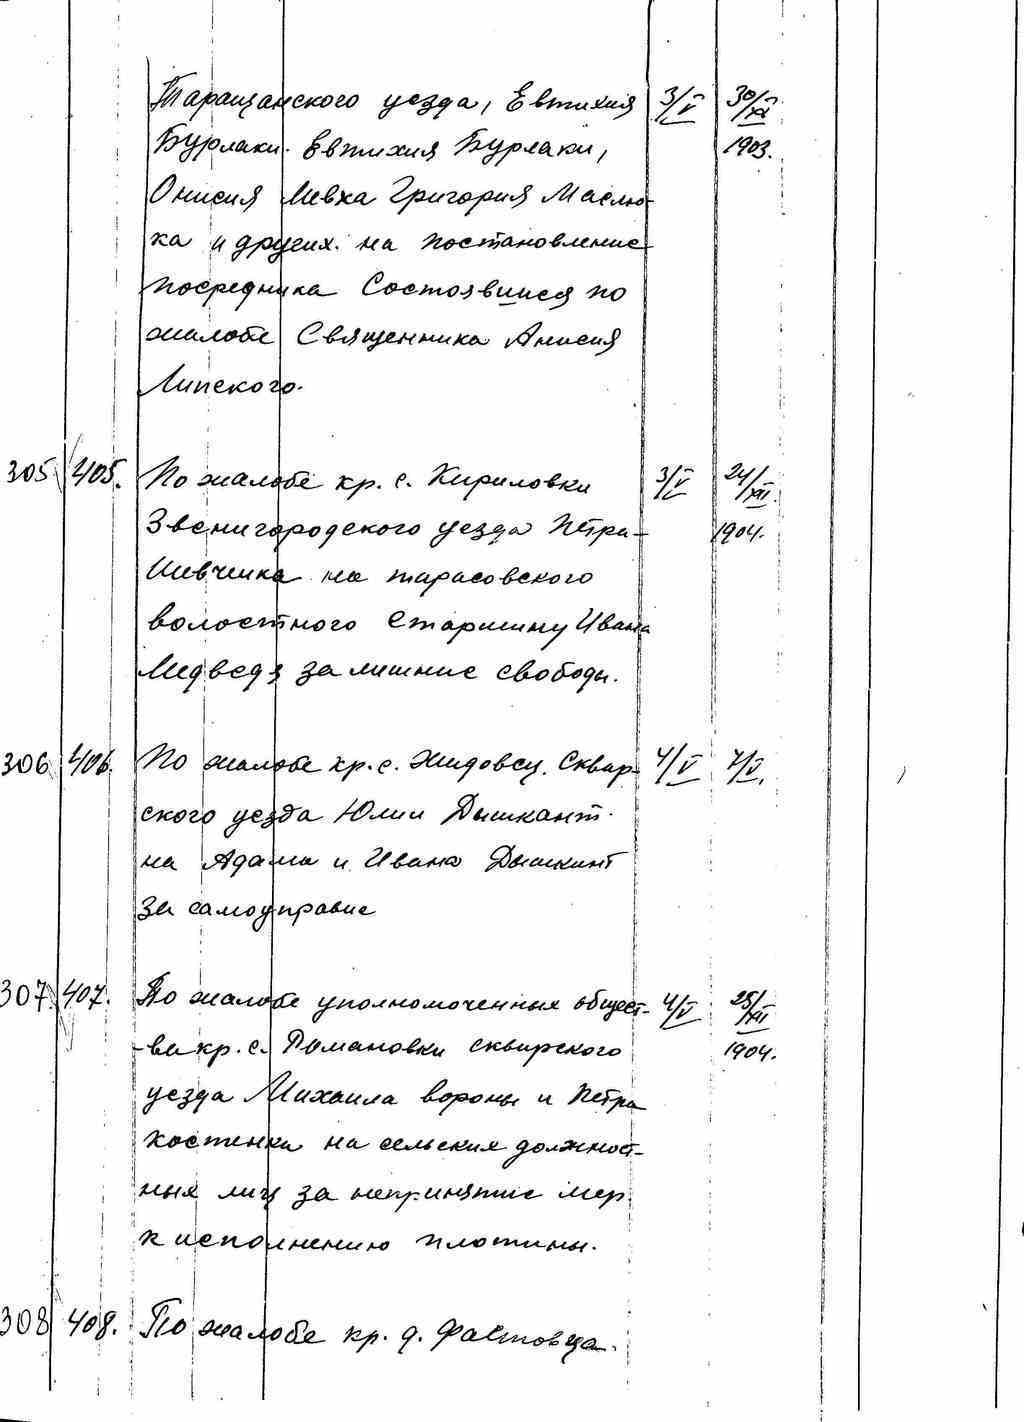 Таращанского уезда, Евтихия 3/V 30/XI
Бурлаки. Евтихия Бурлаки, 1903.
Онисия Левха Григория Маслю-
ка и других. на постановление
посредника Состоявшися по
жалобе Священника Анисия
Липского.
305 405. По жалобе кр. с. Кириловки 3/V 24/XII.
Звенигородского уезда Петра 1904.
Шевченка на тарасовского
волостного Старшину Ивана
Медведя за лишние свободы.
306 406. По жалобе кр. с. Жидовец. Сквир- 4/V 7/V.
ского уезда Юлии Дышкант.
на Адама и Ивана Дышкант
за самоуправие
307. 407. По жалобе уполномоченных общест- 4/V 25/XII
-ва кр. с. Романовки сквирского 1904.
уезда Михаила вороны и Петра
костенки на сельских должност-
ных лиц за непринятие мер.
к исполнению плотины.
308 408. По жалобе кр. д. Фастовца.